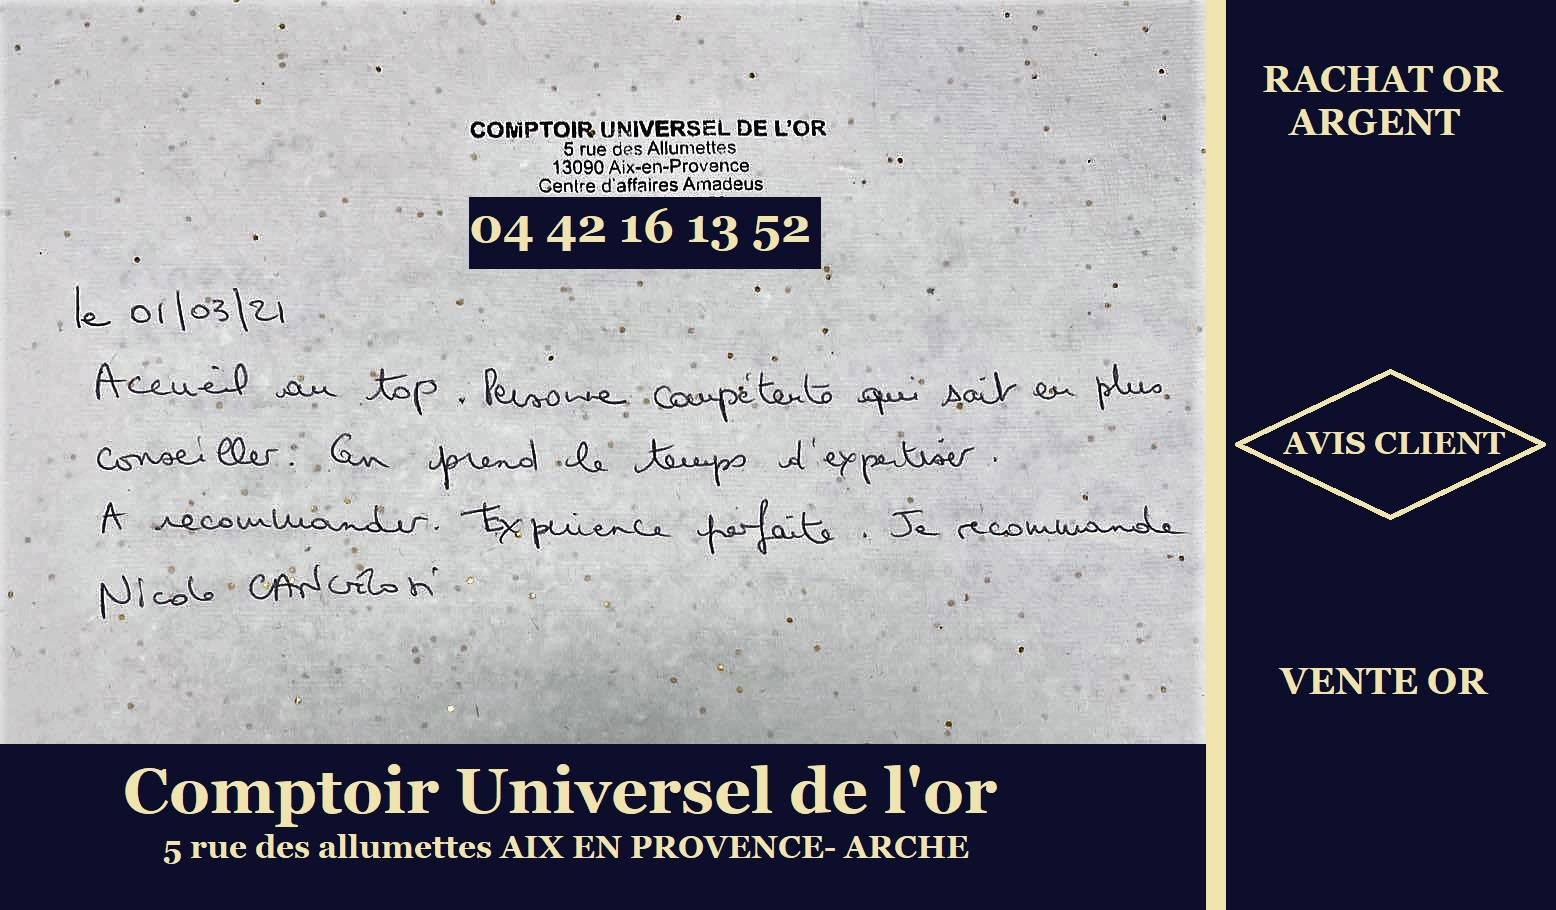 COMPTOIR UNIVERSEL DE L'OR
5 rue des Allumettes
13090 Aix-en-Provence
Centre d'affaires Amadeus
04 42 16 13 52
le 01/03/21
Accueil au top. Personne compétente qui sait en plus
conseiller. On prend le temps d'expertiser.
A recommander. Expérience parfaite. Je recommande
Nicole
RACHAT OR
ARGENT
AVIS CLIENT
VENTE OR
Comptoir Universel de l'or
5 rue des allumettes AIX EN PROVENCE- ARCHE